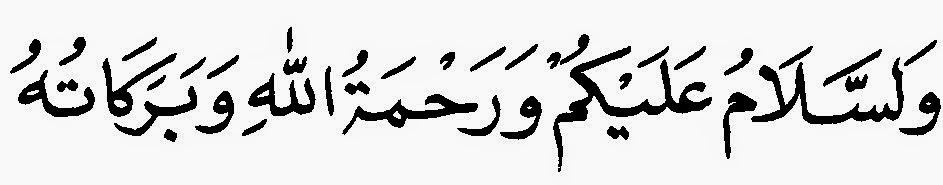 وَلَسَّلَامُ عَلَيْكُمْ وَرَحْمَةُ اللّٰهِ وَبَرَكَاتُهُ